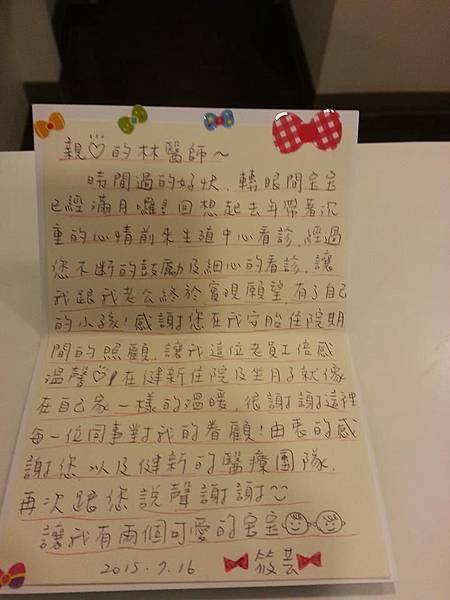 親♡的林醫師~
時間過的好快,轉眼間宝宝
已經滿月囉!回想起去年帶著沉
重的心情前來生殖中心看診,經過
您不斷的鼓勵及細心的看診,讓
我跟我老公終於實現願望,有了自己
的小孩!感謝您在我安胎住院期
間的照顧,讓我這位老員工倍感
溫馨♡!在健新住院及坐月子就像
在自己家一樣的溫暖,很謝謝這裡
每一位同事對我的眷顧!由衷的感
謝您以及健新的醫療團隊.
再次跟您說聲謝謝~
讓我有兩個可愛的宝宝
2015.7.16 筱芸